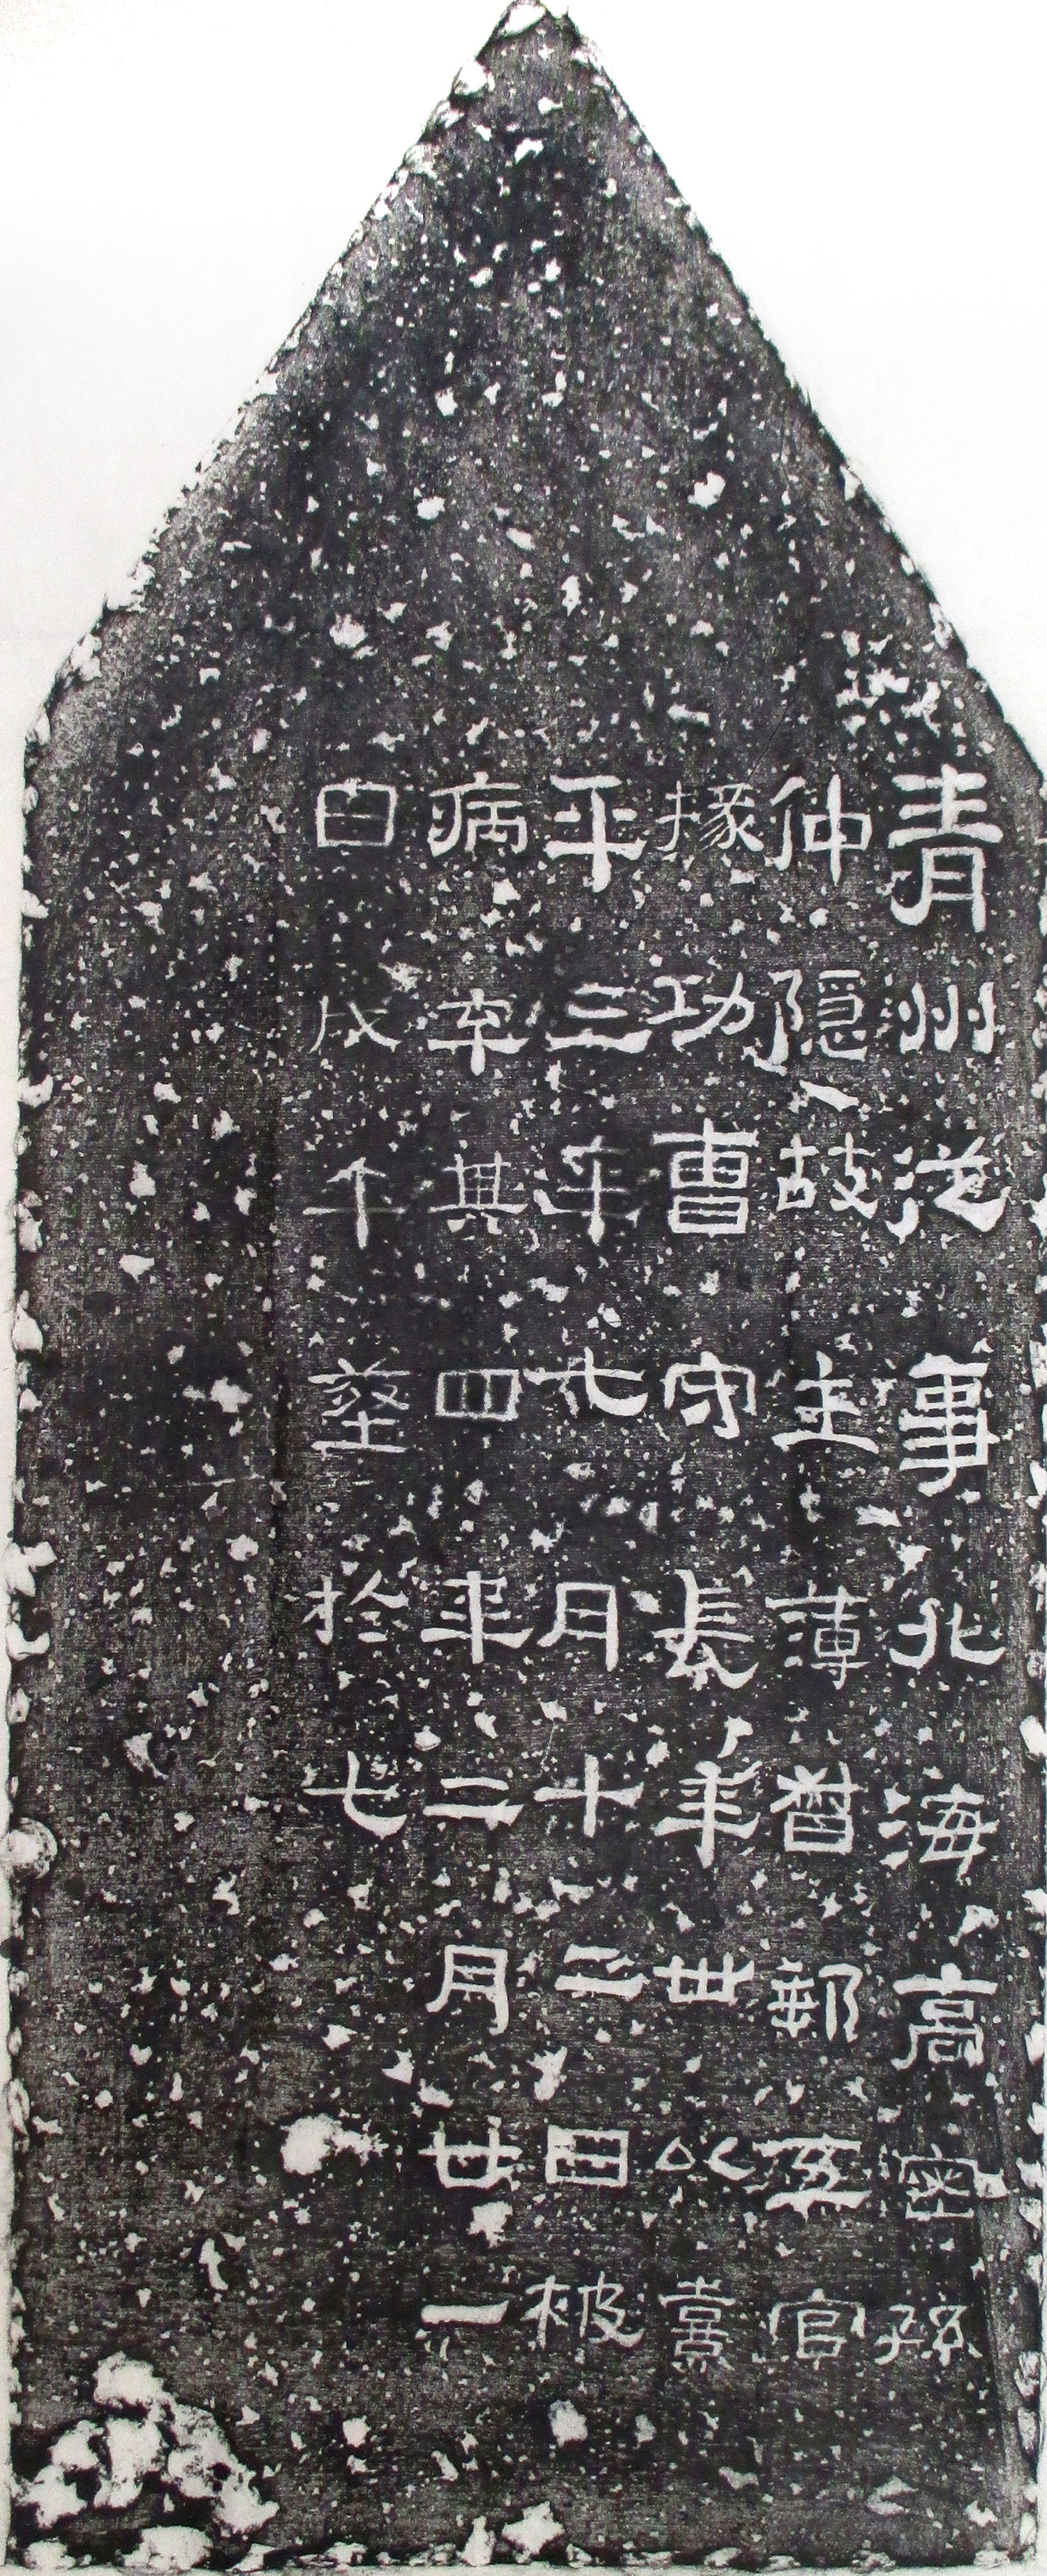 青州從事北海高密孫
仲隱故主薄督郵五官
掾功曹守長年卅以熹
平三年七月十二日被
病卒其四年二月廿一
日戊午塟於七